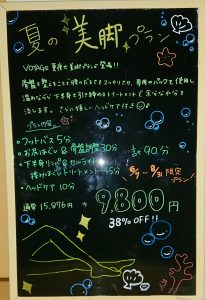 夏の美脚プラン
VOYAGE 夏限定 美脚プランが登場!!
骨盤を整えることで 脚のだるさをスッキリさせ、専用のパックを使用し
温めながら 下半身を引き締めるトリートメントで 余分な水分を
流します。さらに嬉しいヘッドケア付き
プランの内容
・フットバス 5分
・お尻ほぐし & 骨盤調整 30分
・下半身リンパ & セルライト
揉みほぐしトリートメント 45分
・ヘッドケア 10分
計90分
8/1〜8/31 限定プラン!
通常 15,876円 ⇒ 9,800円
38% OFF!!